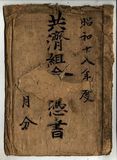 昭和十八年度
共濟組合 憑書
月分